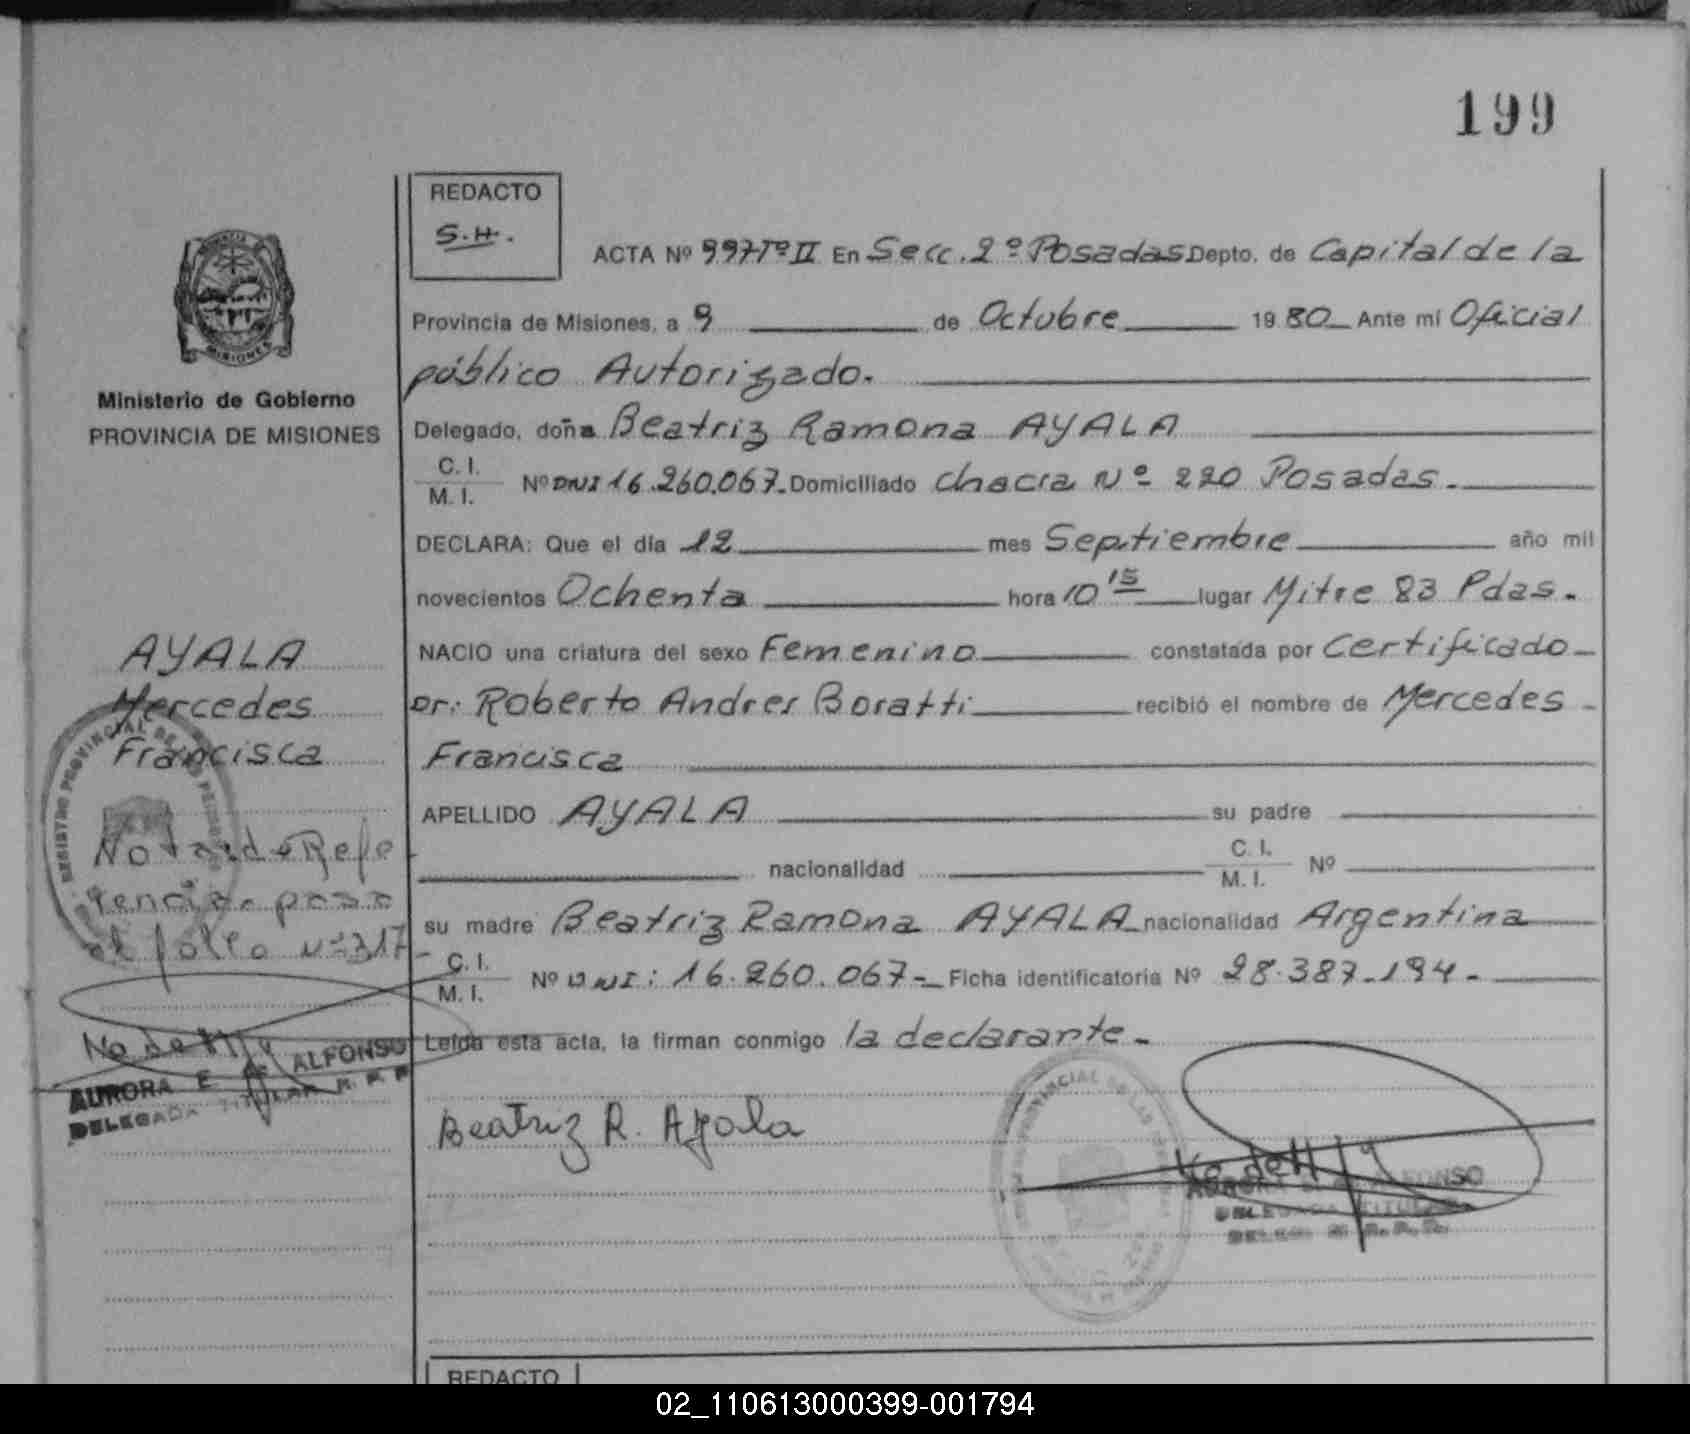 199
REDACTO
S.H.
ACTA Nº 997 Tº II En Secc. 2º Posadas Depto. de Capital de la
Provincia de Misiones, a 9 de Octubre 1980 Ante mi Oficial
público Autorizado.
Delegado, doña Beatriz Ramona AYALA
C. I.
M. I. Nº DNI 16.260.067. Domiciliado chacra Nº 220 Posadas.
DECLARA: Que el día 12 mes Septiembre año mil
novecientos Ochenta hora 10 15 lugar Mitre 83 Pdas.
NACIO una criatura del sexo Femenino constatada por Certificado
Dr: Roberto Andres Boratti recibió el nombre de Mercedes
Francisca
APELLIDO AYALA su padre
nacionalidad C. I.
M. I. Nº
su madre Beatriz Ramona AYALA nacionalidad Argentina
C. I.
M. I. Nº DNI: 16.260.067- Ficha identificatoria Nº 28.387.194-
Leída esta acta, la firman conmigo la declarante.
Beatriz R. Ayala
AURORA E. de ALFONSO
DELEGADA TITULAR
MISIONES
Ministerio de Gobierno
PROVINCIA DE MISIONES
AYALA
Mercedes
Francisca
REGISTRO PROVINCIAL DE LAS PERSONAS
Nota de Refe
rencia. pasa
al folio nº 317
AURORA E. de ALFONSO
DELEGADA TITULAR R. P. P.
REDACTO
02_110613000399-001794